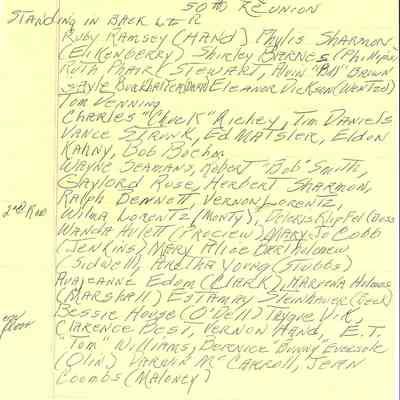 50th REUNION
STANDING IN BACK L to R
Ruby Ramsey (HAND) Phylis Sharmon
(Eikenberry) Shirley Barnes (Phillips)
Ruth Phair (Stewart), Alvin "Bill" Brown
Gayle Eleanor Dickson (Wented)
Tom Denning
Charles "Chuck" Richey, Tim Daniels
Vance Strunk, Ed Matsler, Eldon
Karny, Bob Boehm
Wayne Seamans, Robert "Bob" Smith,
Gaylord Ruse, Herbert Sharmon,
Ralph Demnett, Vernon Lorentz,
2nd Row Wilma Lorentz (Monty), Deloris Klipfel (Boss
Wanda Avlett () Mary Jo Cobb
(Jenkins) Mary Alice Bartholomew
(Sidwell, Aretha Young (Stubbs)
Avajeanne Edom (Clark), Maryena Holmes
(Marshall) Estamay Steinhauer (Geck)
on floor Bessie House (O'Dell) Vik,
Clarence Best, Vernon Hand, E.T.
"Tom" Williams, Bernice "Bunny" Eversole
(Olin) Darwin McCarroll, Jean
Coombs (Maloney)